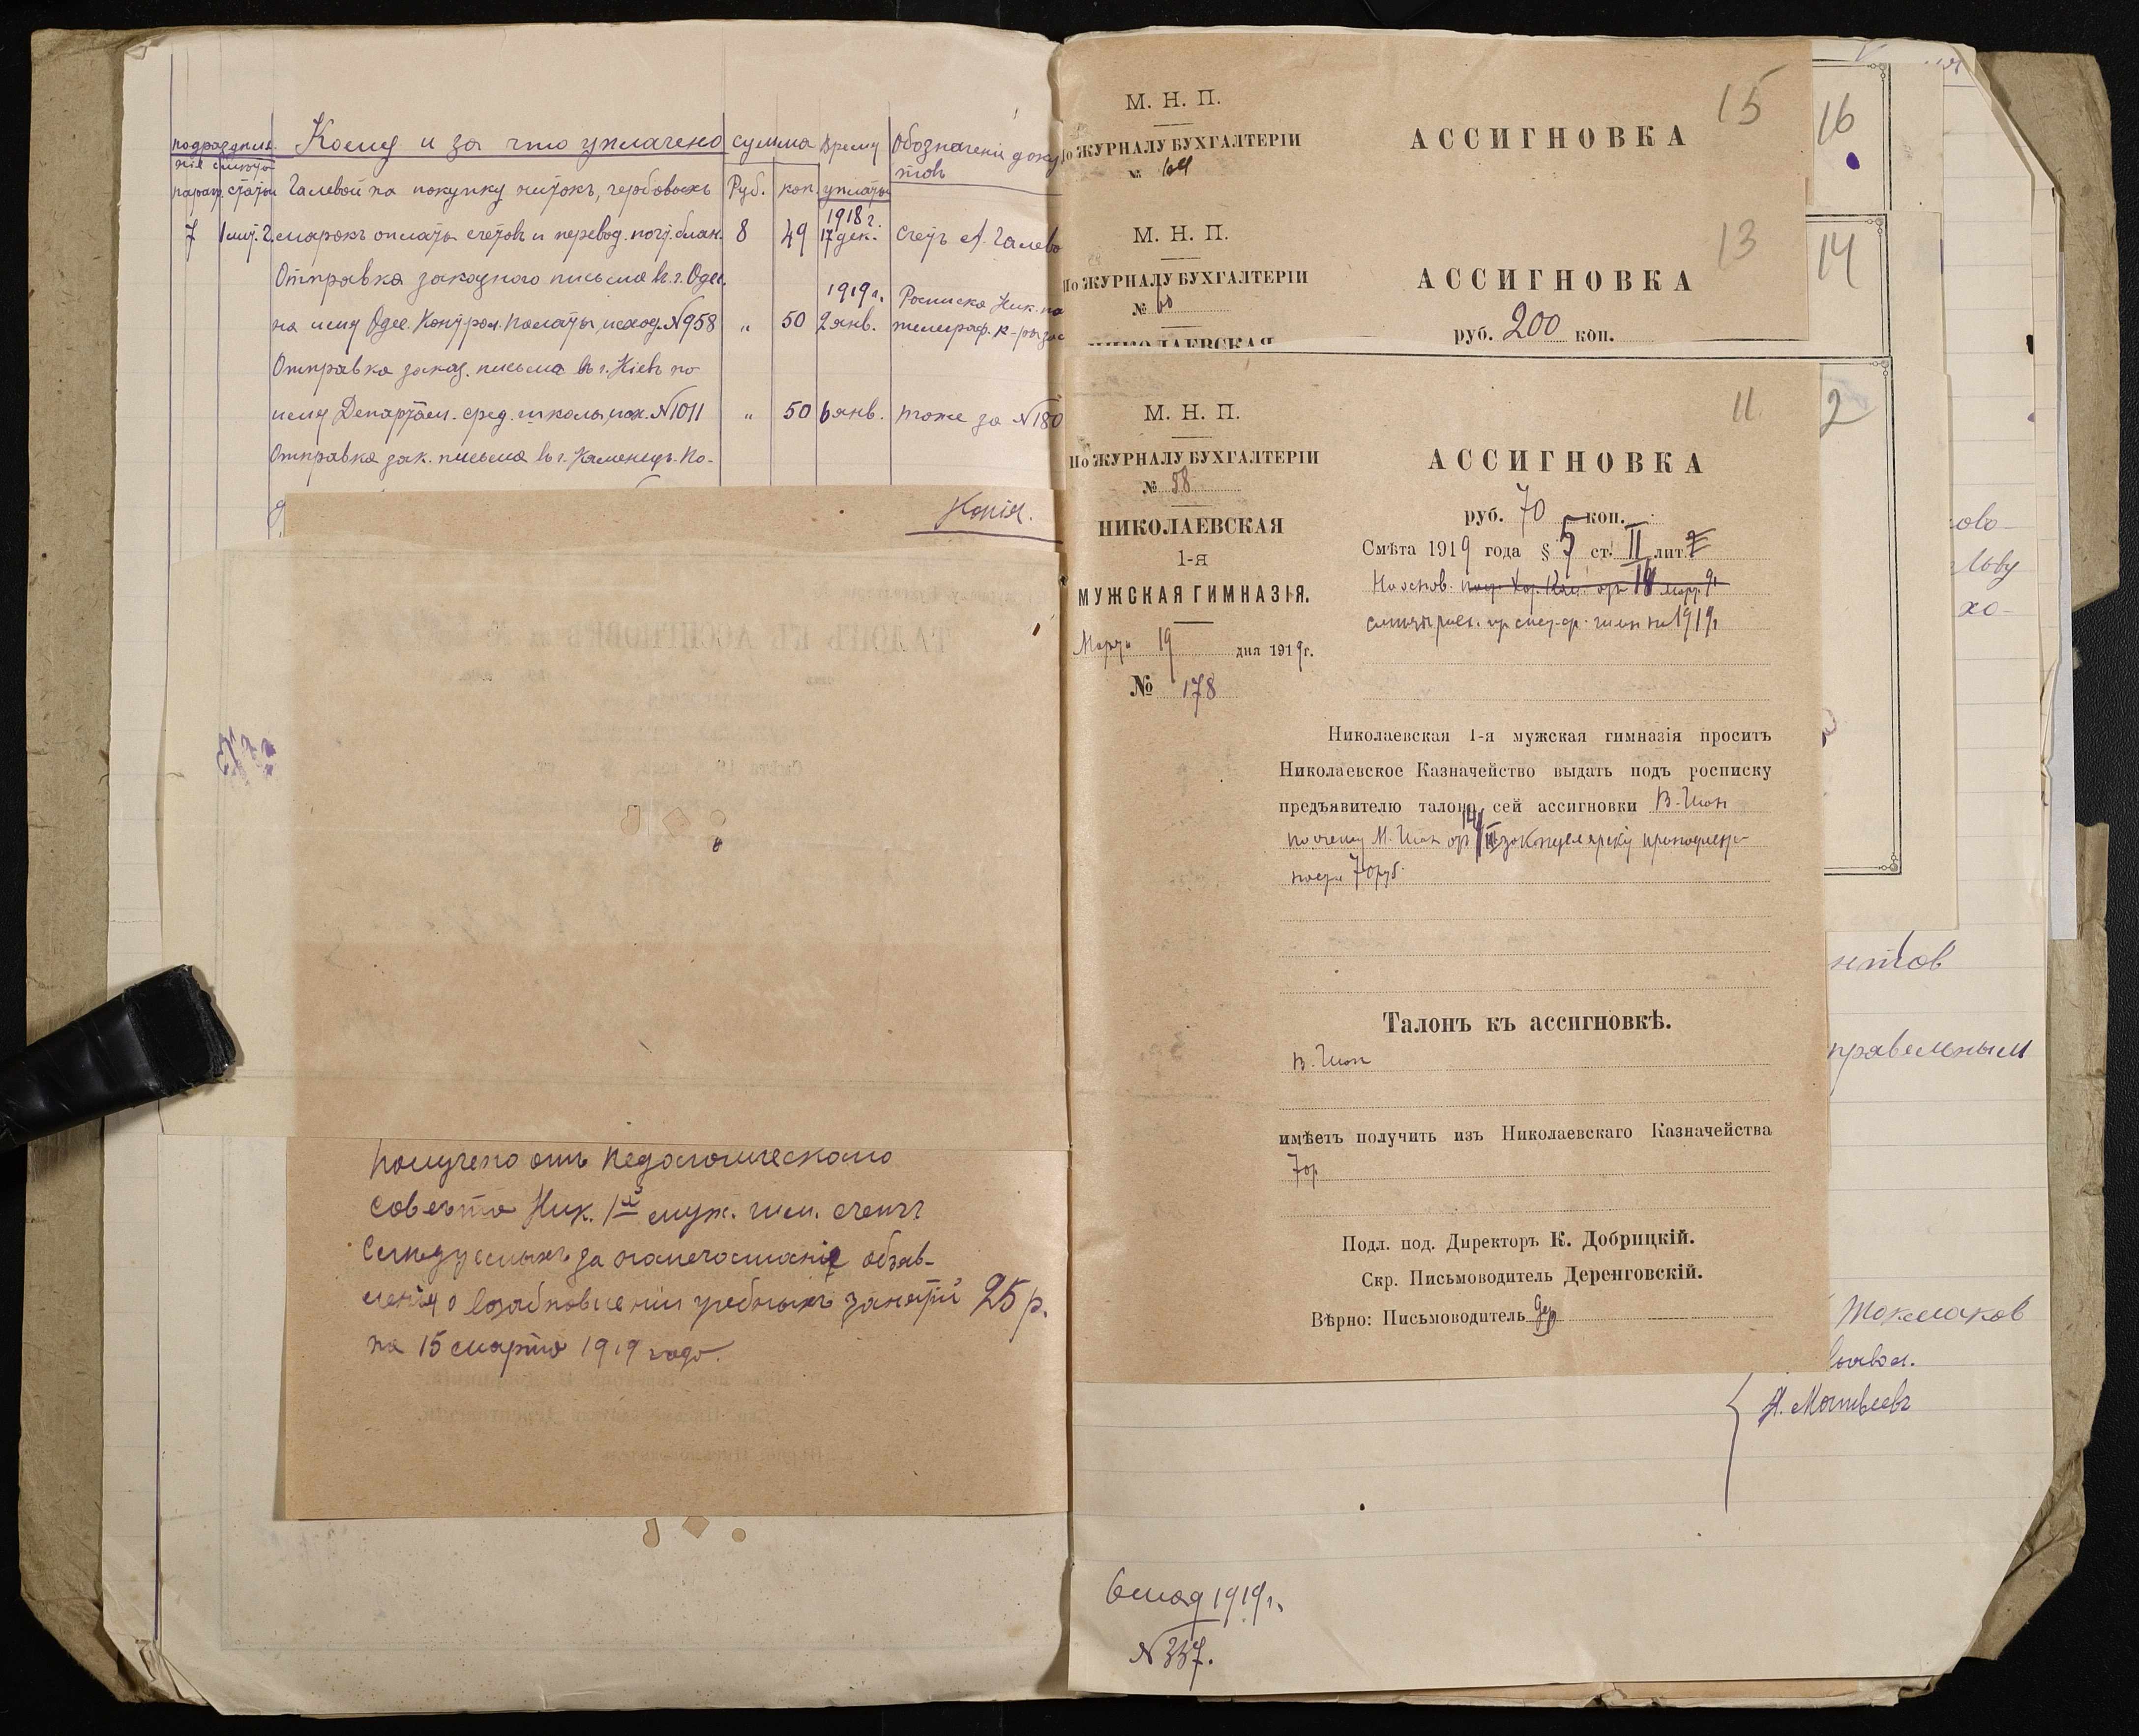 подраздѣле-
нія смѣты
параг. статьи
Кому и за что уплачено
сумма
Руб. коп.
Время
уплаты
Обозначеніе доку
товъ
Галевой на покупку нитокъ, гербовыхъ
7 1 лит. 2. марокъ оплаты счетовъ и перевод. почт. блан. 8 49 1918 г. 17 дек. Счетъ А. Галево
Отправка заказного письма въ г. Одес.
на имя Одес. Контрол. Палаты, исход. №958 „ 50 1919 г. 2 янв. Росписка Ник. по
телеграф. к-ры за
Отправка заказ. письма въ г. Кіевъ по
имя Департам. сред. школы, исх. №1011 „ 50 6 янв. тоже за №180
Отправка зак. письма въ г. Каменецъ-По-
Копія.
Получено отъ Педагогическаго
Совѣта Ник. 1й муж. гим. счетъ
слѣдуемыхъ за напечатаніе объяв-
ленія о возобновленіи учебныхъ занятій 25 р.
на 15 марта 1919 года.
М. Н. П.
По ЖУРНАЛУ БУХГАЛТЕРІИ
№
АССИГНОВКА
15
16
М. Н. П.
По ЖУРНАЛУ БУХГАЛТЕРІИ
№ 60
НИКОЛАЕВСКАЯ
АССИГНОВКА
руб. 200 коп.
13
14
М. Н. П.
По ЖУРНАЛУ БУХГАЛТЕРІИ
№ 58
НИКОЛАЕВСКАЯ
1-я
МУЖСКАЯ ГИМНАЗІЯ.
Марта 19 дня 1919 г.
№ 178
11
2
АССИГНОВКА
руб. 70 коп.
Смѣта 1919 года § 5 ст. II лит.
На основ.
смѣты расх. гим на 1919 г
Николаевская 1-я мужская гимназія проситъ
Николаевское Казначейство выдать подъ росписку
предъявителю талона сей ассигновки В. Шон
по счету М. Шон от 14/III за канцелярскіу принадлеж-
ности 70 руб.
Талонъ къ ассигновкѣ.
В. Шон
имѣетъ получить изъ Николаевскаго Казначейства
70 р.
Подл. под. Директоръ К. Добрицкій.
Скр. Письмоводитель Деренговскій.
Вѣрно: Письмоводитель Дер
ово-
льву
хо-
нтов
правильным
Токмаков
Н. Матвѣевъ
6 мая 1919 г.
№ 337.